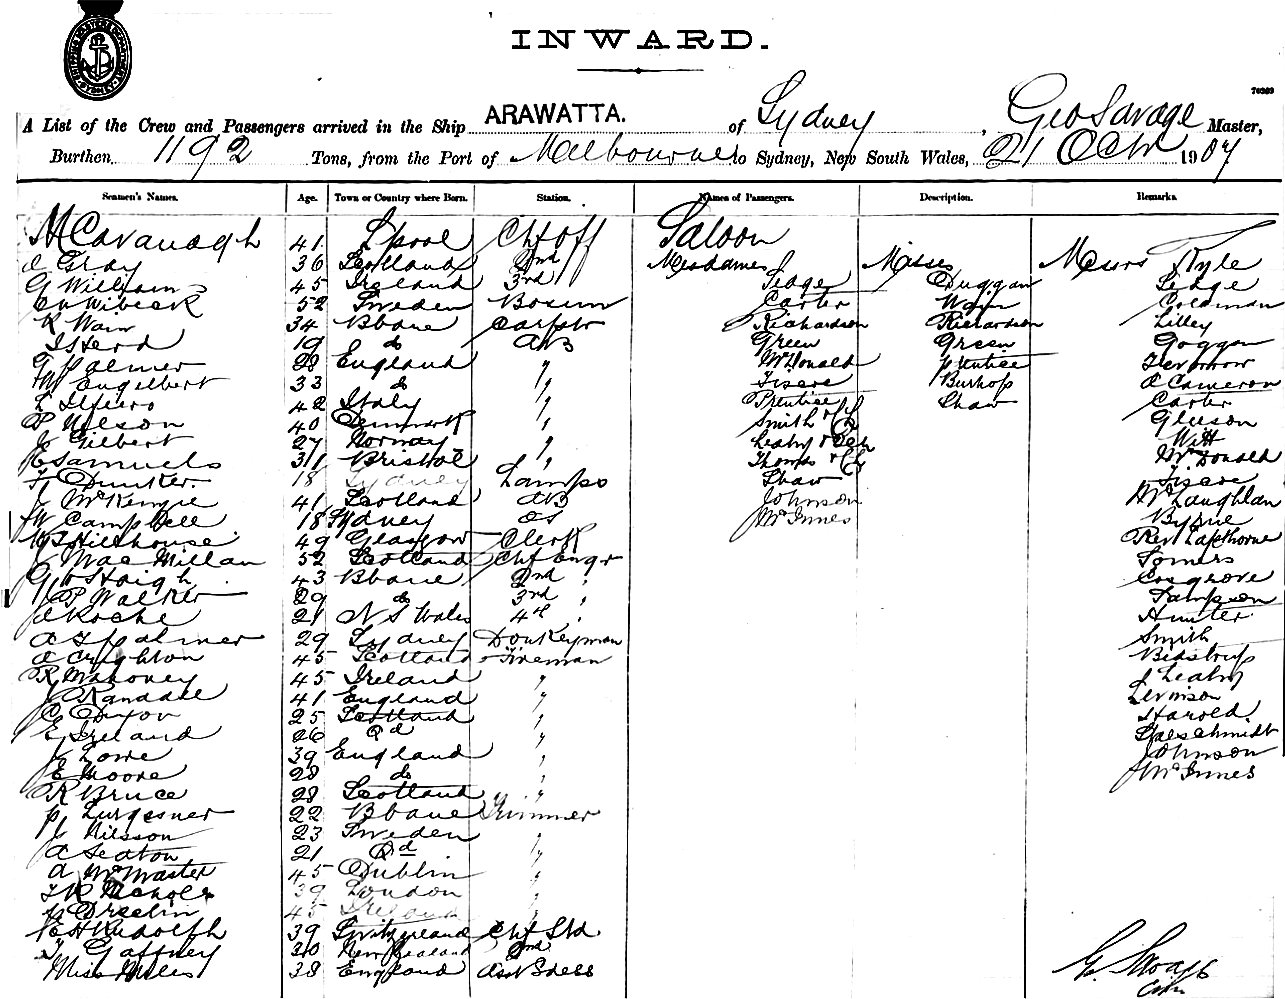 INWARD.
70269
A List of the Crew and Passengers arrived in the Ship ARAWATTA. of Sydney, Geo Savage Master,
Burthen 1192 Tons, from the Port of Melbourne to Sydney, New South Wales, 21 Octr 1907
Seamen's Names. Age. Town or Country where Born. Station. Names of Passengers. Description. Remarks.
M Cavanagh 41 L'pool Chf Off Saloon
Gray 36 Scotland 2nd Mesdames Misses Messrs Kyle
G Williams 45 Ireland 3rd Seage Duggan Seage
Wibeck 52 Sweden Bosun Carter Wain Coleman
K Wain 34 Bbane Carptr Richardson Richardson Lilley
J Sterd 19 do AB Green Green Goggan
G Palmer 28 England " McDonald Prentice
W Engelbert 33 do " Fiscre Burhop A Cameron
42 Italy " Prentice Shaw Carter
P Nilson 40 Denmark " Smith & Ch Gleeson
J Gilbert 27 Norway " Leahy & Ch Witt
H Samuels 31 Bristol " Thomas & Ch McDonald
F Dunker 18 Sydney Lamps Shaw Fiscre
J McKenzie 41 Scotland AB Johnson McLaughlan
W Campbell 18 Sydney OS McInnes Byrne
W J Hillhouse 49 Glasgow Clerk Rev Lapthorne
J MacMillan 52 Scotland Chf Engr Somers
G W Haigh 43 Bbane 2nd " Cosgrove
J P Walker 29 do 3rd " Sampson
A Roche 21 N S Wales 4th " Hunter
A J Palmer 29 Sydney Donkeyman Smith
A Crighton 45 Scotland Fireman Bidstrup
R Mahoney 45 Ireland " Leahy
J Randall 41 England " Levinson
C Dixon 25 Scotland " Harold
E Ireland 26 Qd " Galeschmidt
J Lowe 39 England " Johnson
E Moore 28 do " McInnes
R Bruce 28 Scotland "
P Lurgesner 22 Bbane Trimmer
J Nilsson 23 Sweden "
A Seaton 21 Qd "
A McMaster 45 Dublin "
Nichols 39 London "
J Breslin 45 Ireland "
H Rudolph 39 Switzerland Chf Std
J Gaffney 30 New Zealand 2nd
Miss Miles 38 England Asst Sdess
G. Savage